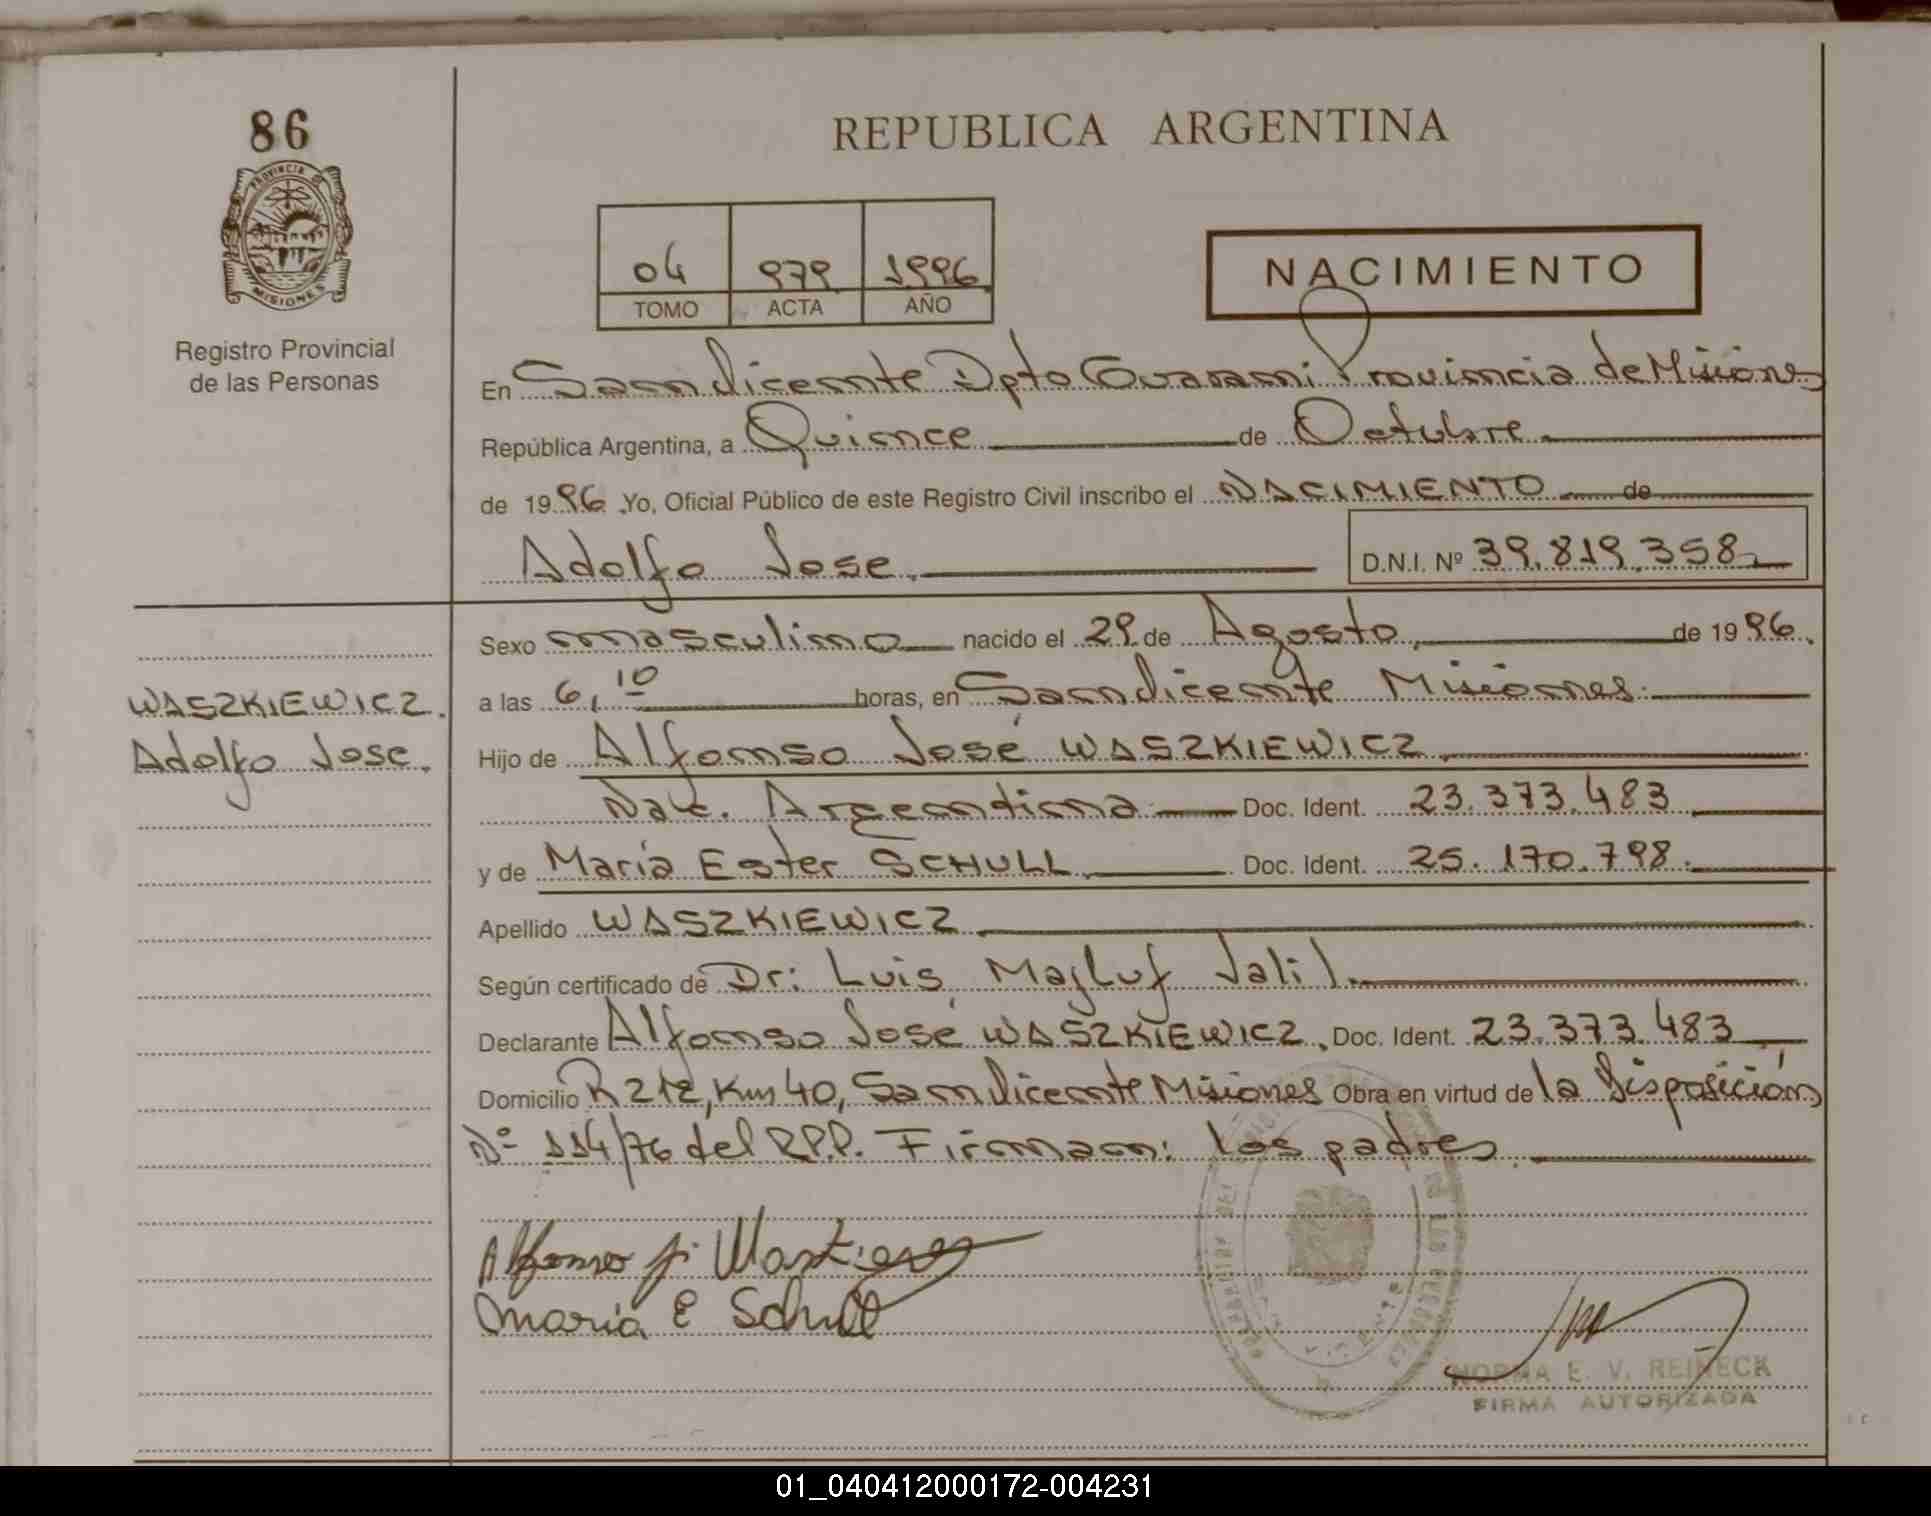 86
PROVINCIA DE
MISIONES
Registro Provincial
de las Personas
REPUBLICA ARGENTINA
04 979 1996
TOMO ACTA AÑO
NACIMIENTO
En San Vicente Dpto Guarani Provincia de Misiones
República Argentina, a Quince de Octubre
de 1996 Yo, Oficial Público de este Registro Civil inscribo el NACIMIENTO de
Adolfo Jose. D.N.I. Nº 39.819.358
Sexo masculino nacido el 29 de Agosto de 1996.
WASZKIEWICZ. a las 6,10 horas, en San Vicente Misiones.
Adolfo Jose. Hijo de Alfonso José WASZKIEWICZ
Nac. Argentina Doc. Ident. 23.373.483
y de María Ester SCHULL Doc. Ident. 25.170.798.
Apellido WASZKIEWICZ
Según certificado de Dr: Luis Majluf Jalil.
Declarante Alfonso José WASZKIEWICZ. Doc. Ident. 23.373.483
Domicilio R 212, Km 40, San Vicente Misiones Obra en virtud de la Disposición
Nº 114/76 del R.P.P. Firman: los padres.
Alfonso J.
Maria E Schull
NORMA E. V. REINECK
FIRMA AUTORIZADA
01_040412000172-004231